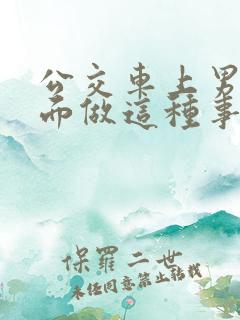 公交車上男
而做這種事
保羅二世
未經同意禁止轉載